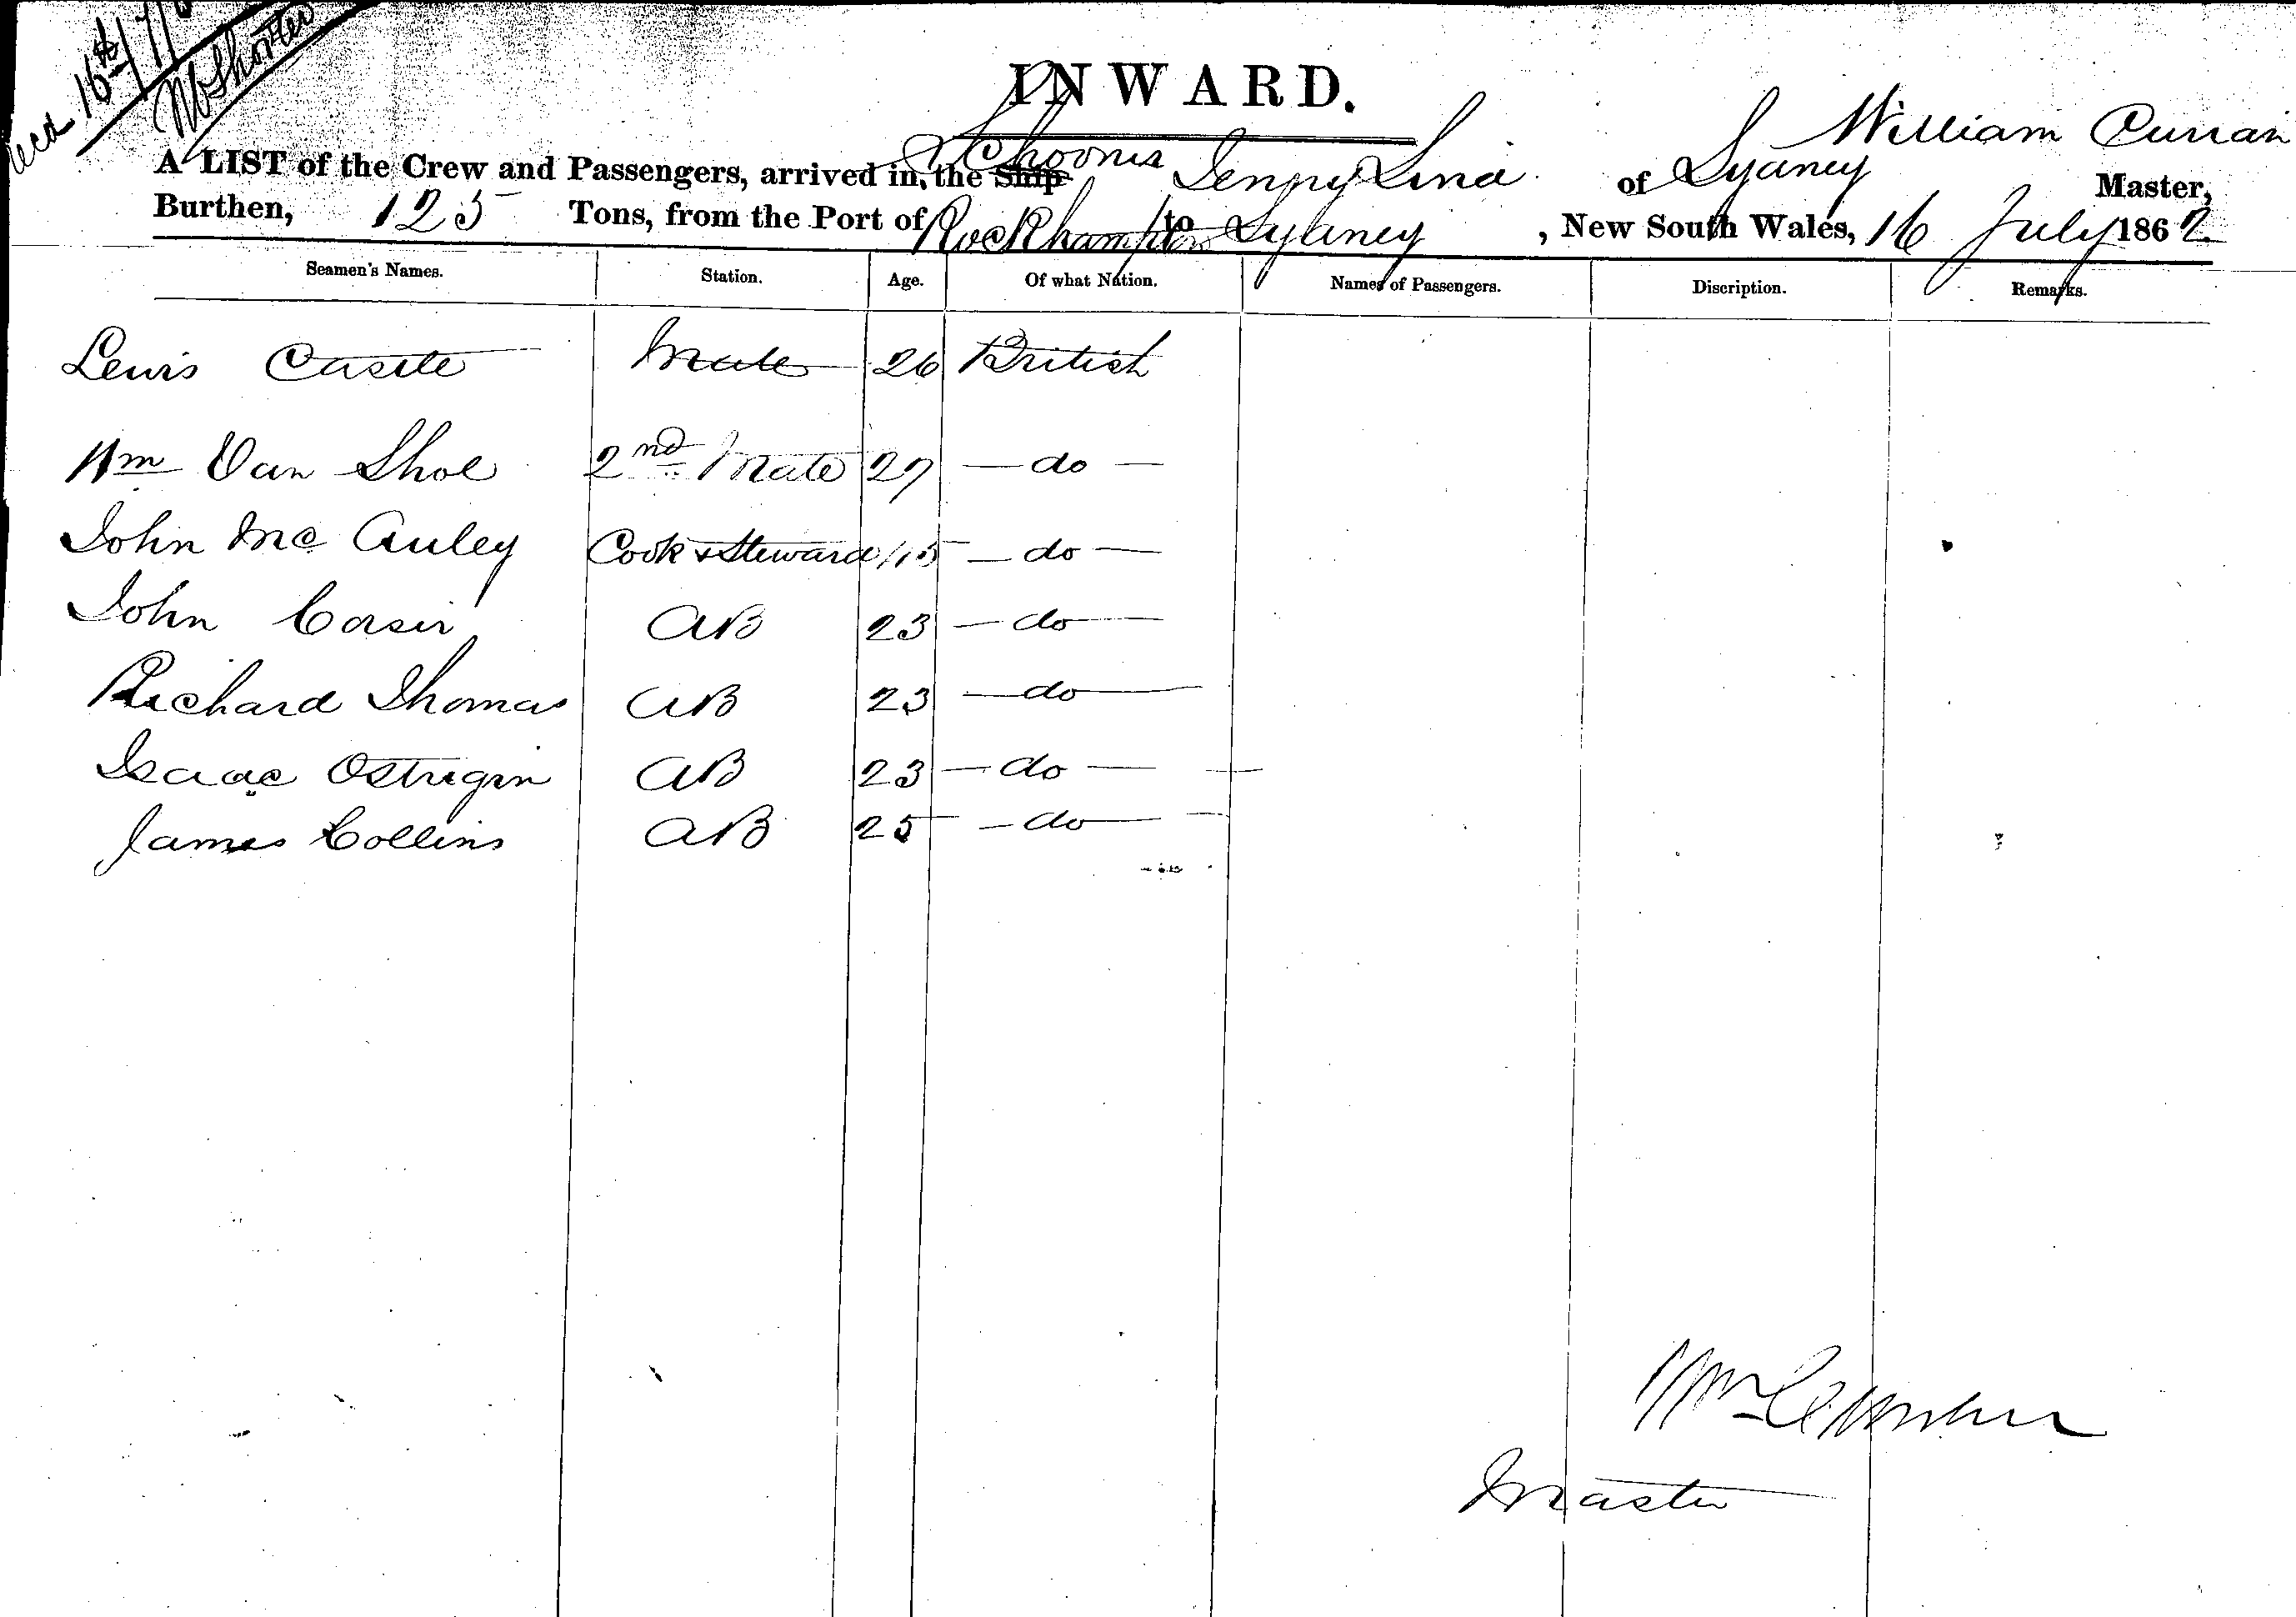 Recd 16th
M Shorter
INWARD.
William Curran
A LIST of the Crew and Passengers, arrived in the Ship Schooner Jenny Lind of Sydney Master,
Burthen, 125 Tons, from the Port of Rockhampton to Sydney, New South Wales, 16 July 1862
Seamen's Names. Station. Age. Of what Nation. Names of Passengers. Discription. Remarks.
Lewis Castle Mate 26 British
Wm Van Shoe 2nd Mate 27 — do —
John McAuley Cook & Steward 15 — do —
John AB 23 — do —
Richard Thomas AB 23 — do —
Isaac Ostrigin AB 23 — do —
James Collins AB 25 — do —
Wm
Master